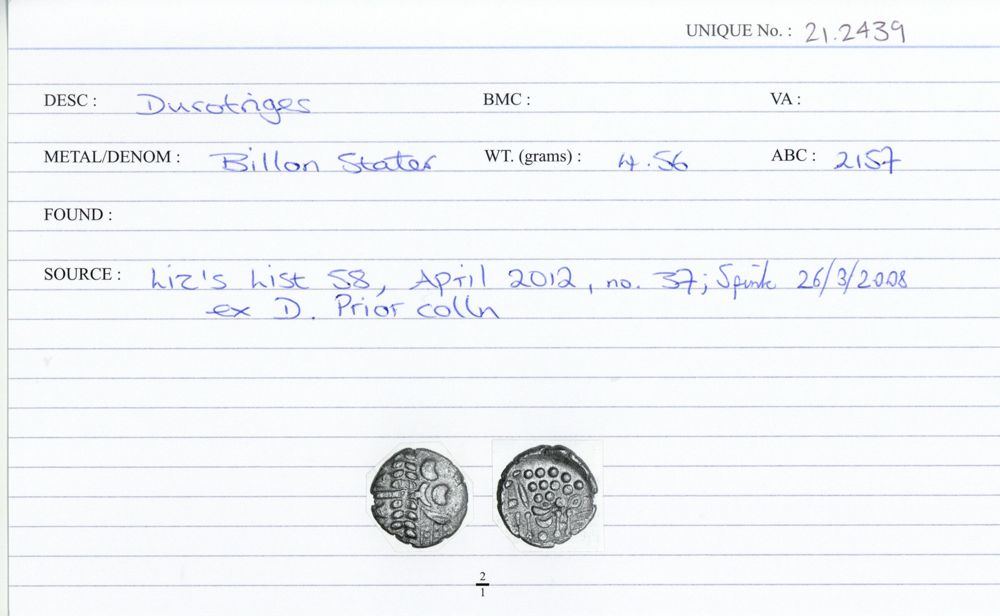 UNIQUE No. : 21.2439
DESC : Durotriges BMC : VA :
METAL/DENOM : Billon Stater WT. (grams) : 4.56 ABC : 2157
FOUND :
SOURCE : Liz's List 58, April 2012, no. 37; Spink 26/3/2008
ex D. Prior colln
2
1